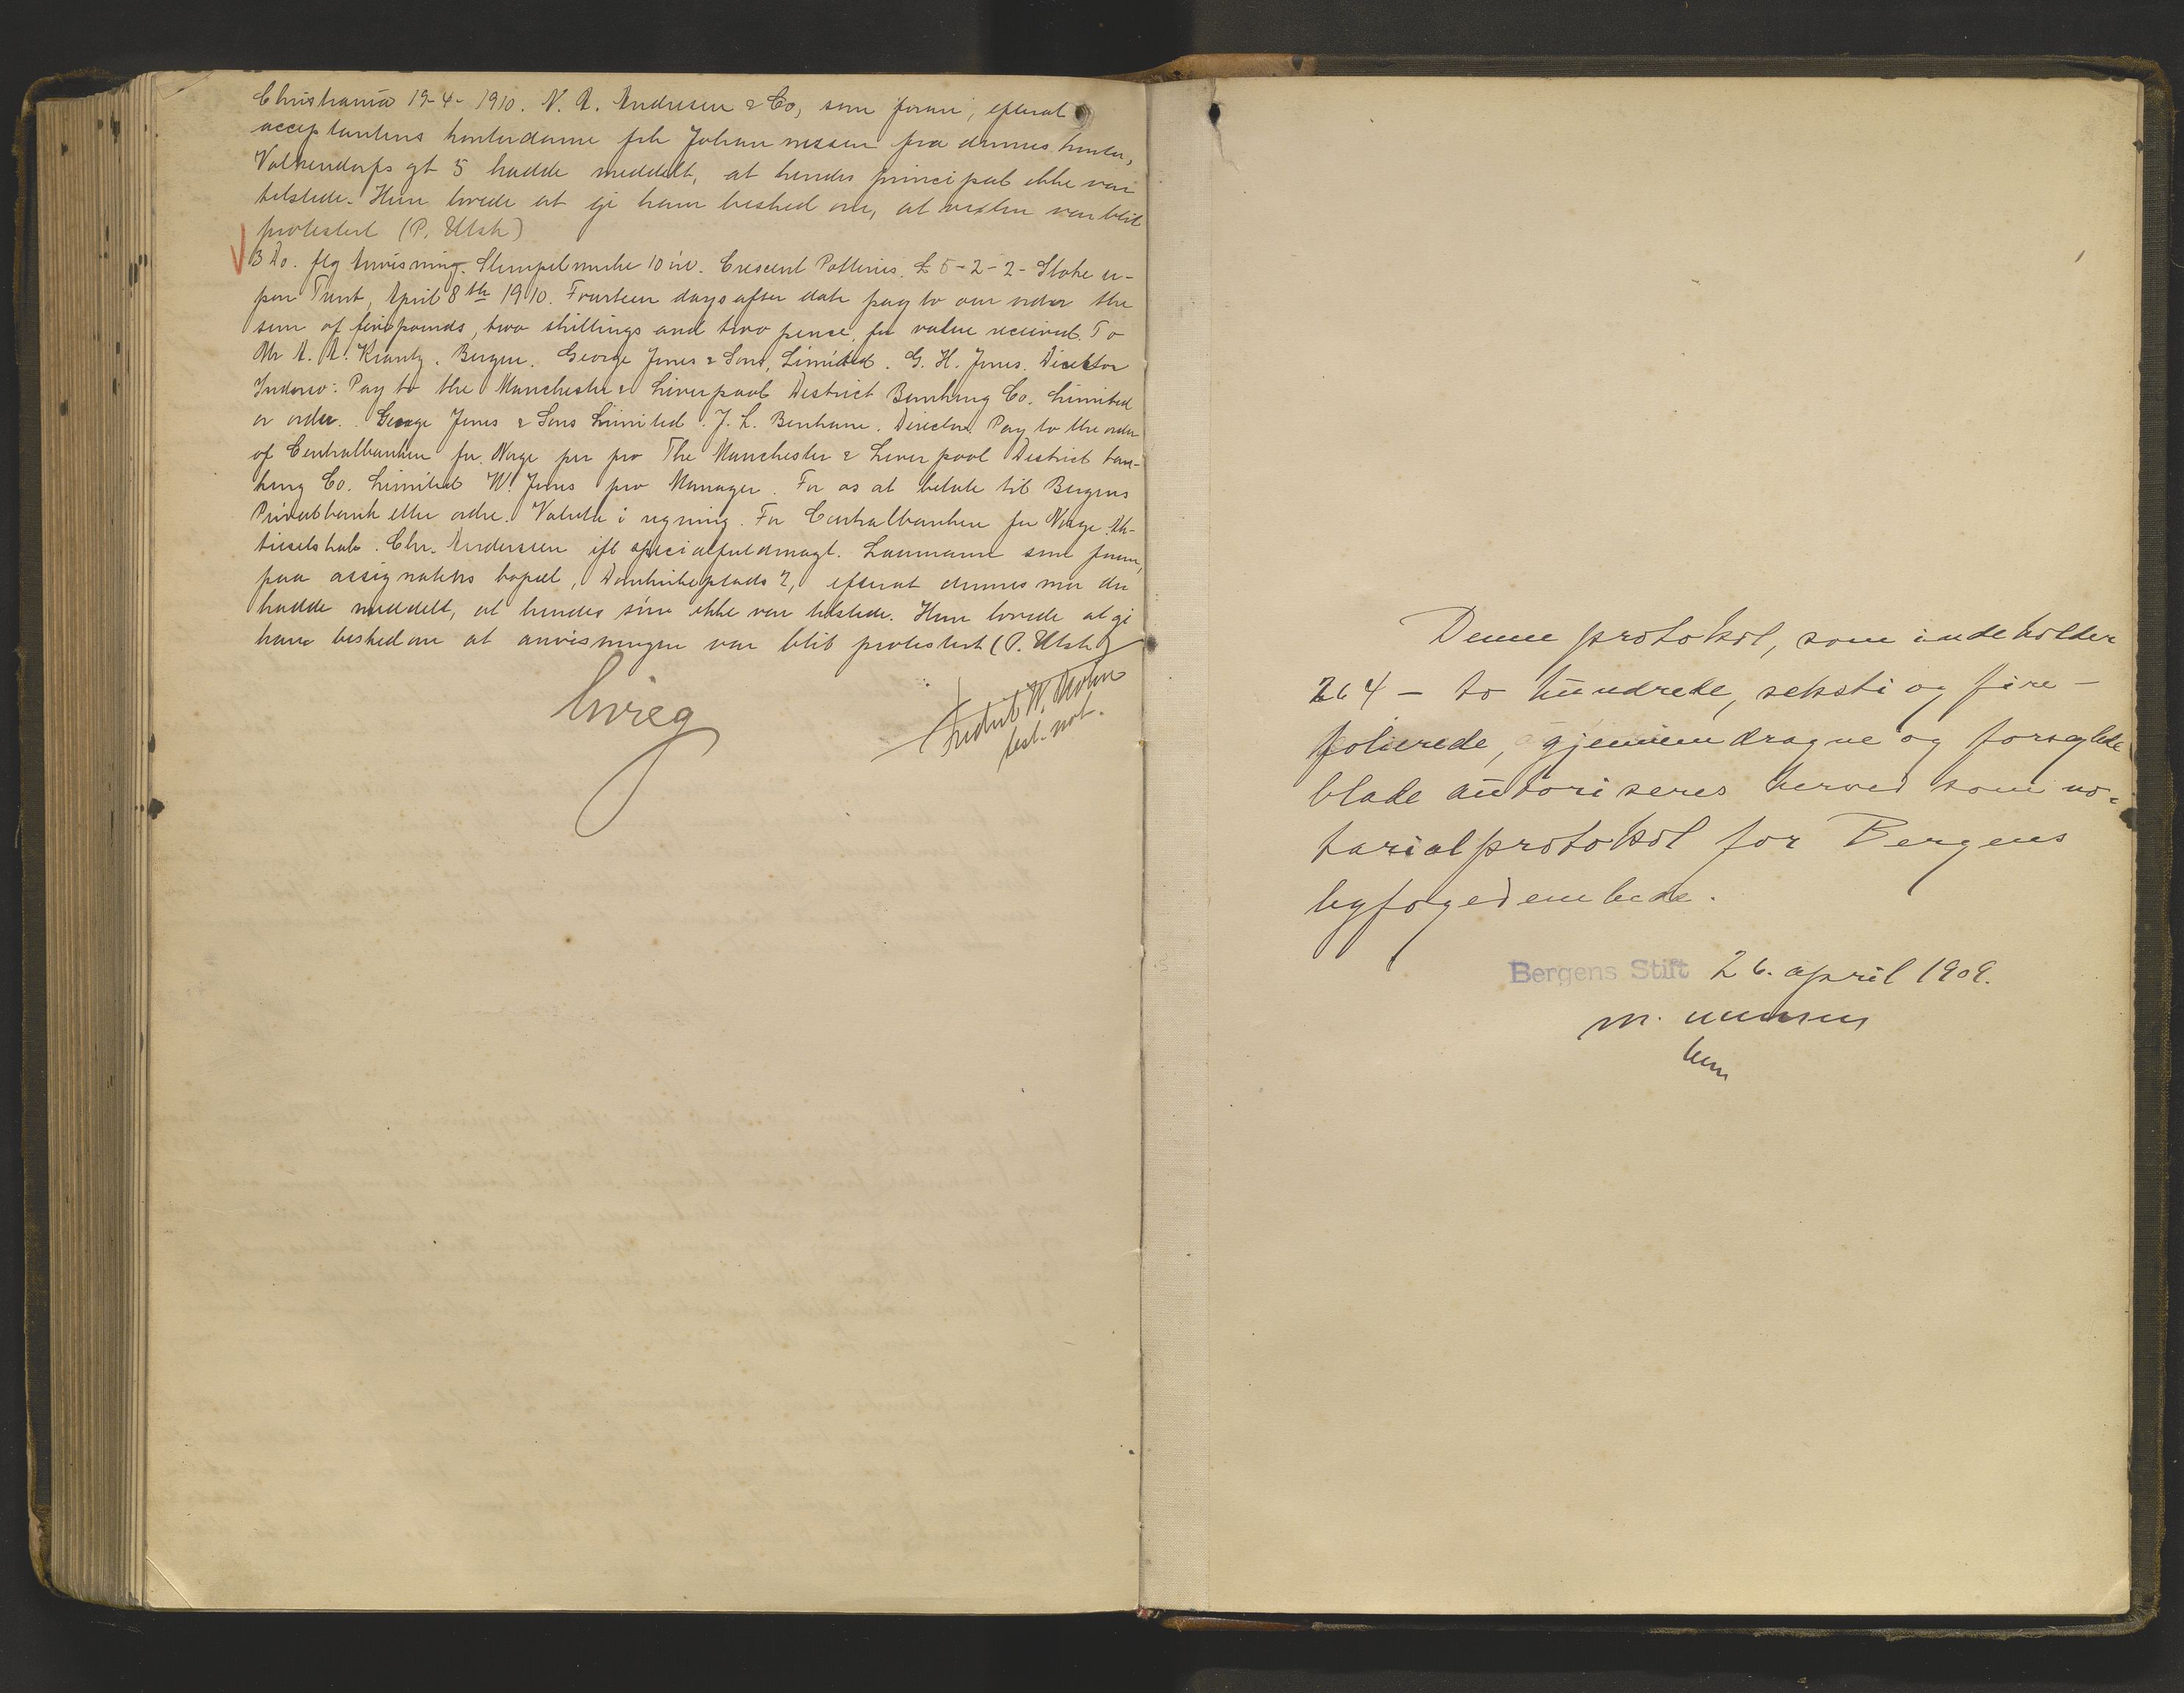 Christiania 19-4-1910. N. A. Andresen & Co, som foran, efterat
acceptantens kontordame frk Johannessen fra dennes kontor,
Valkendorfs gt 5 hadde meddelt, at hendes principal ikke var
tilstede. Hun lovede at gi ham besked om, at vexlen var blit
protestert (P. Utsk)
3 Do. flg Anvisning. Stempelmerke 10 øre. Crescent Potteries. £ 5-2-2- Stoke u-
pon Trent, April 8th 1910. Fourteen days after date pay to our order the
sum of five pounds, two shillings and two pence, for value received. To
Mr A. A. Krantz. Bergen. George Jones & Sons, Limited. G. H. Jones. Direktor
Indorso: Pay to the Manchester & Liverpool District Banking Co. Limited
or order. George Jones & Sons Limited. J. L. Benham. Director. Pay to the order
of Centralbanken for Norge per pro The Manchester & Liverpool District ban-
king Co. Limited W. Jones pro Manager. For os at betale til Bergens
Privatbank eller ordre. Valuta i regning. For Centralbanken for Norge Ak-
tieselskab. Chr. Anderssen ifl specialfuldmagt. Laumann som foran,
paa assignatens bopæl, Domkirkeplads 2, efterat dennes mor der
hadde meddelt, at hendes søn ikke var tilstede. Hun lovede at gi
ham besked om at anvisningen var blit protestert (P. Utsk)
Kvieg
Fredrik W. Mohn
best. not.
Denne protokol, som indeholder
264 - to hundrede, seksti og fire -
folierede, gjennemdragne og forseglede
blade autoriseres herved som no=
tarialprotokol for Bergens
byfogedembede.
Bergens Stift 26. april 1909.
m.